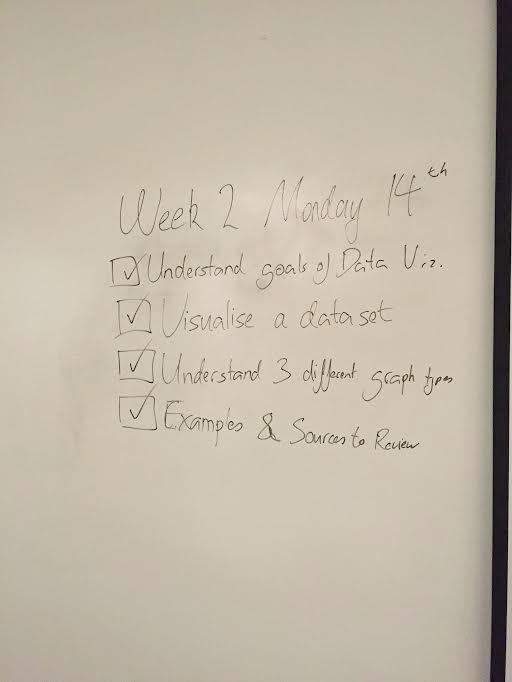 Week 2 Monday 14th
Understand goals of Data Viz.
Visualise a dataset
Understand 3 different graph types
Examples & Sources to Review